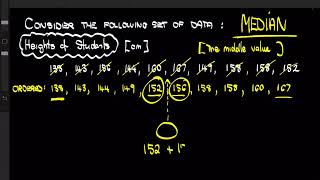 CONSIDER THE FOLLOWING SET OF DATA : MEDIAN
Heights of Students [cm] [The middle value]
138, 143, 156, 144, 160, 167, 149, 158, 158, 152
ORDERED: 138, 143, 144, 149, 152, 156, 158, 158, 160, 167
152 + 15